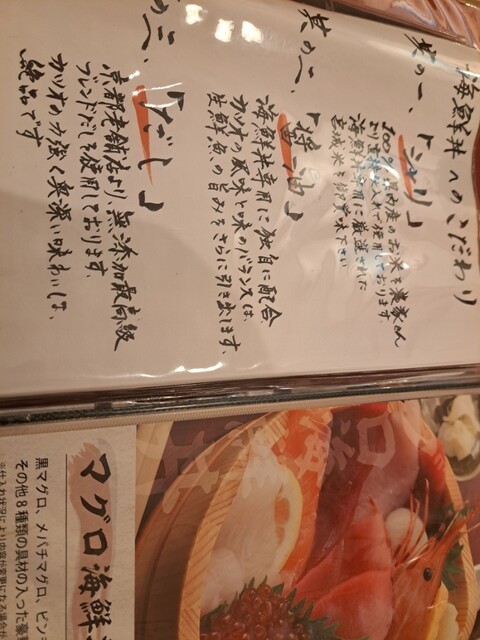 海鮮丼へのこだわり
其の一、「シャリ」
100%国内産のお米を農家さん
より直接仕入れて使用しております。
海鮮丼専用に厳選された
宮城米を御賞味下さい
其の二、「醤油」
海鮮丼専用に独自に配合、
カツオの風味と味のバランスは、
生鮮魚の旨みをさらに引き出します。
の三、「だし」
京都老舗店より、無添加最高級
ブレンドだしを使用しております。
カツオの力強く奥深い味わいは、
絶品です
マグロ海鮮
黒マグロ、メバチマグロ、ビン
その他8種類の具材の入った豪
※仕入れ状況により内容が変更になる場合が